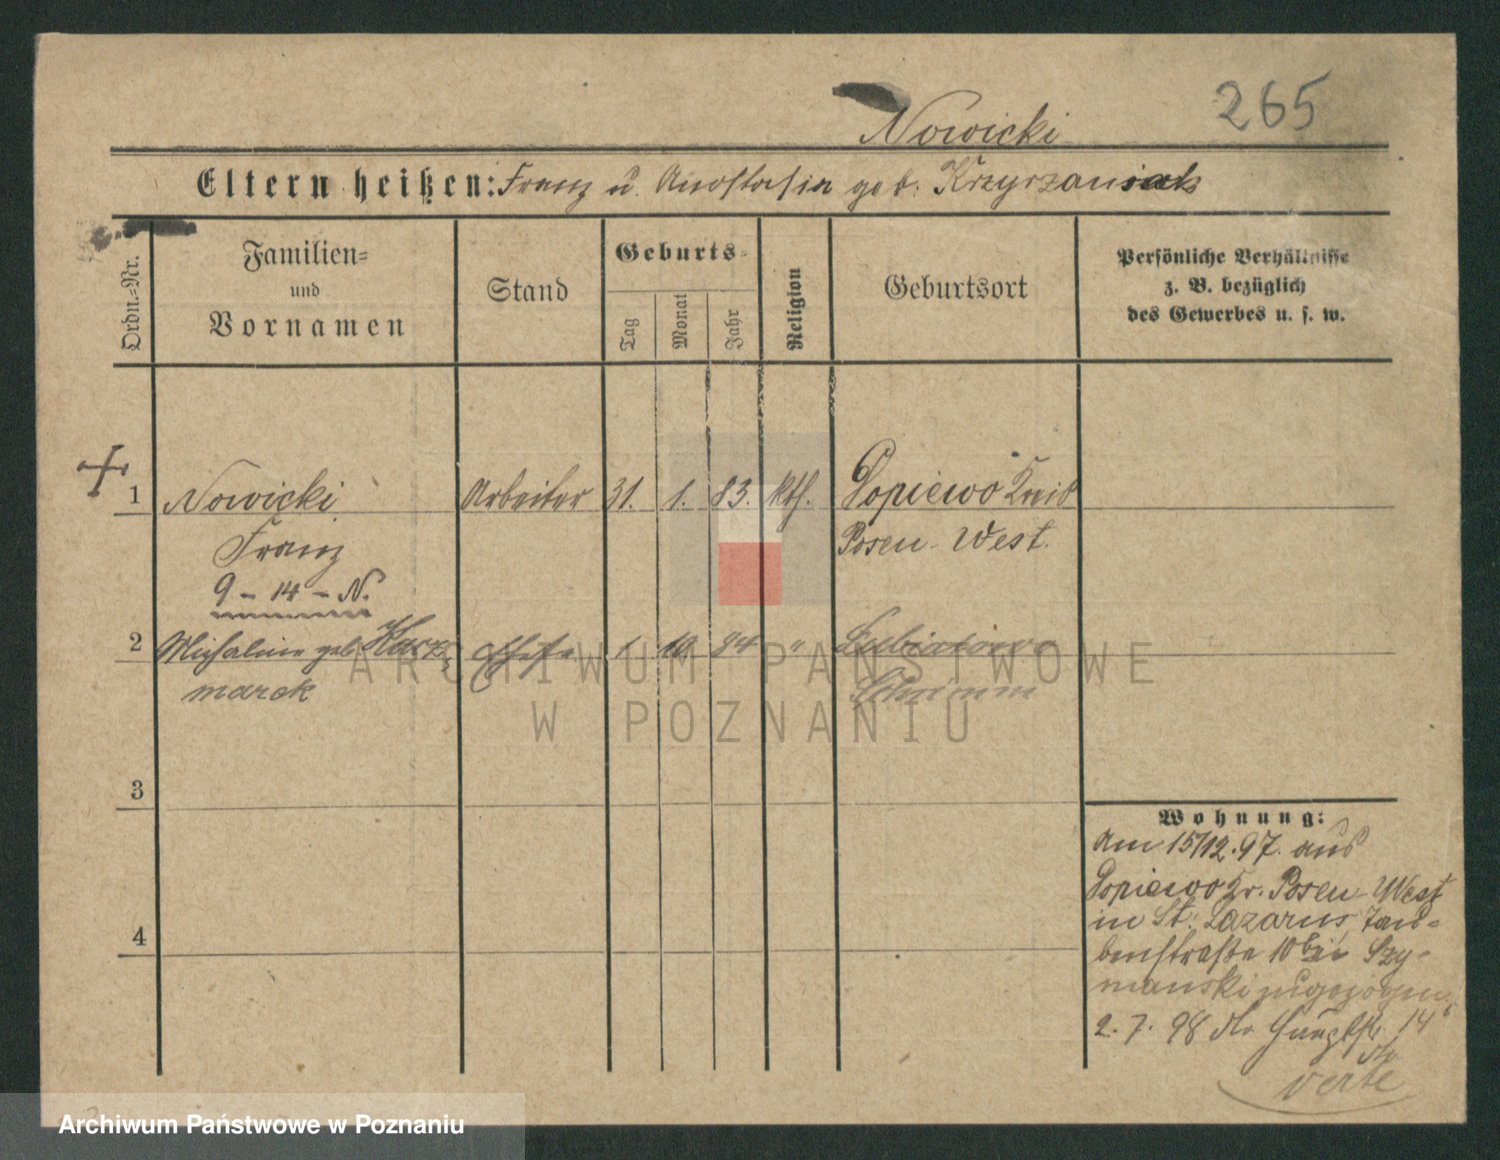 265
Nowicki
Eltern heißen: Franz u. Anastasia geb. Krzyrzaniak
Ordn.-Nr.
Familien-
und
Vornamen
Stand
Geburts-
Tag
Monat
Jahr
Religion
Geburtsort
Persönliche Verhältnisse
z. B. bezüglich
des Gewerbes u. s. w.
1 Nowicki Arbeiter 31. 1. 83. kth. Dopiewo Kreis
Franz Posen-West.
9 - 14 - N.
2 Michalina geb. Kacz- Ehefr. 1. 10. 84 "
marek Schrimm
3
4
Wohnung:
Am 15/12.97. aus
Dopiewo Kr. Posen-West
in St. Lazarus, Tau-
benstraße 10 bei Szy-
manski zugezogen.
2. 7. 98 Hauptstr. 14
verte
ARCHIWUM PAŃSTWOWE
W POZNANIU
Archiwum Państwowe w Poznaniu